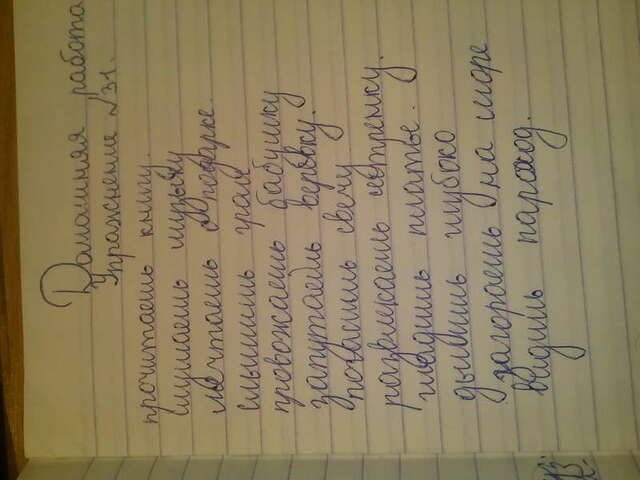 Домашняя работа
Упражнение №31.
прочитаешь книгу.
слушаешь музыку
мечтаешь о подарке.
слышишь гром
провожаешь бабушку
запутаешь верёвку.
погасишь свечу
развлекаешь сестрёнку.
гладишь платье.
дышишь глубоко
загораешь на море
видишь пароход.